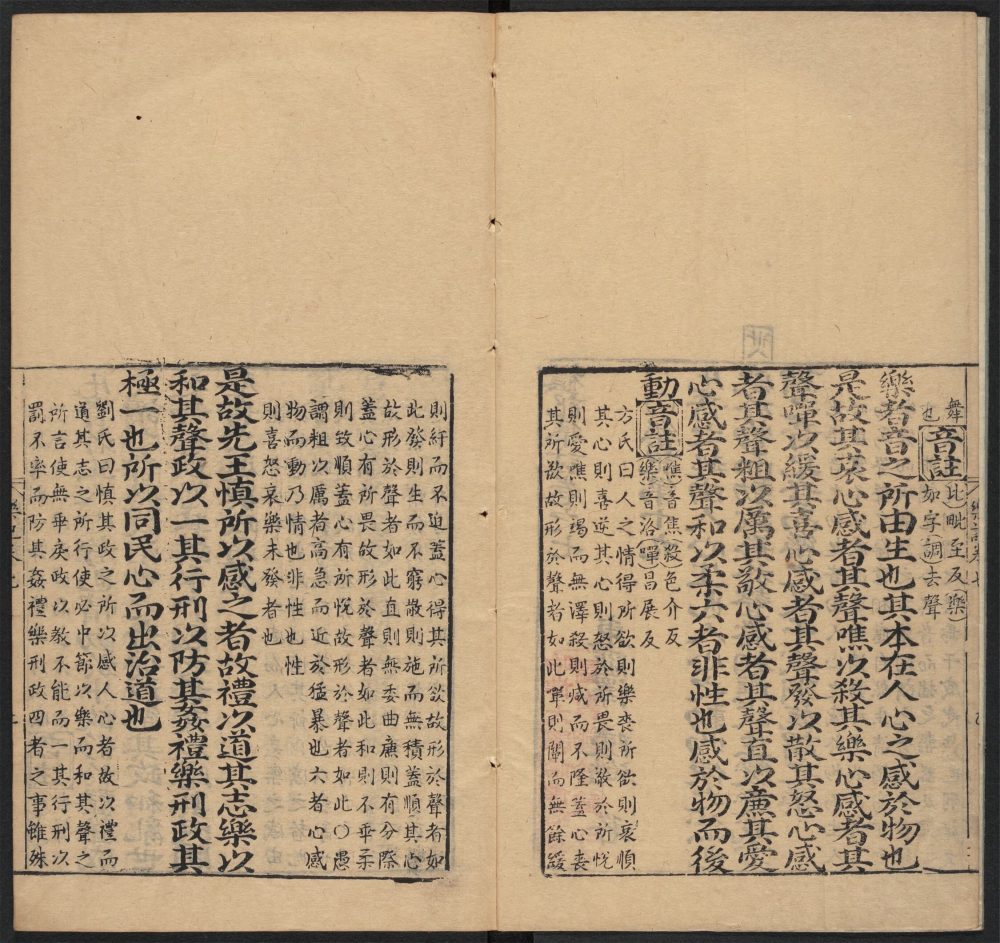 舞
也音註比毗至反樂
如字調去聲
樂者音之所由生也其本在人心之感於物也
是故其哀心感者其聲噍以殺其樂心感者其
聲嘽以緩其喜心感者其聲發以散其怒心感
者其聲粗以厲其敬心感者其聲直以廉其愛
心感者其聲和以柔六者非性也感於物而後
動音註噍音焦殺色介反
樂音洛嘽昌展反
方氏曰人之情得所欲則樂喪所欲則哀順
其心則喜逆其心則怒於所畏則敬於所悅
則愛噍則竭而無澤殺則烕而不隆蓋心喪
其所欲故形於聲者如此嘽則闡而無餘緩
則紆而不迫蓋心得其所欲故形於聲者如
此發則生而不窮散則施而無積蓋順其心
故形於聲者如此直則無委曲廉則有分際
蓋心有所畏故形於聲者如此和則不乖柔
則致順蓋心有所悅故形於聲者如此○愚
謂粗以厲者高急而近於猛暴也六者心感
物而動乃情也非性也性
則喜怒哀樂未發者也
是故先王慎所以感之者故禮以道其志樂以
和其聲政以一其行刑以防其姦禮樂刑政其
極一也所以同民心而出治道也
劉氏曰慎其政之所以感人心者故以禮而
道其志之所行使必中節以樂而和其聲之
所言使無乖戾政以教不能而一其行刑以
罰不率而防其姦禮樂刑政四者之事雖殊